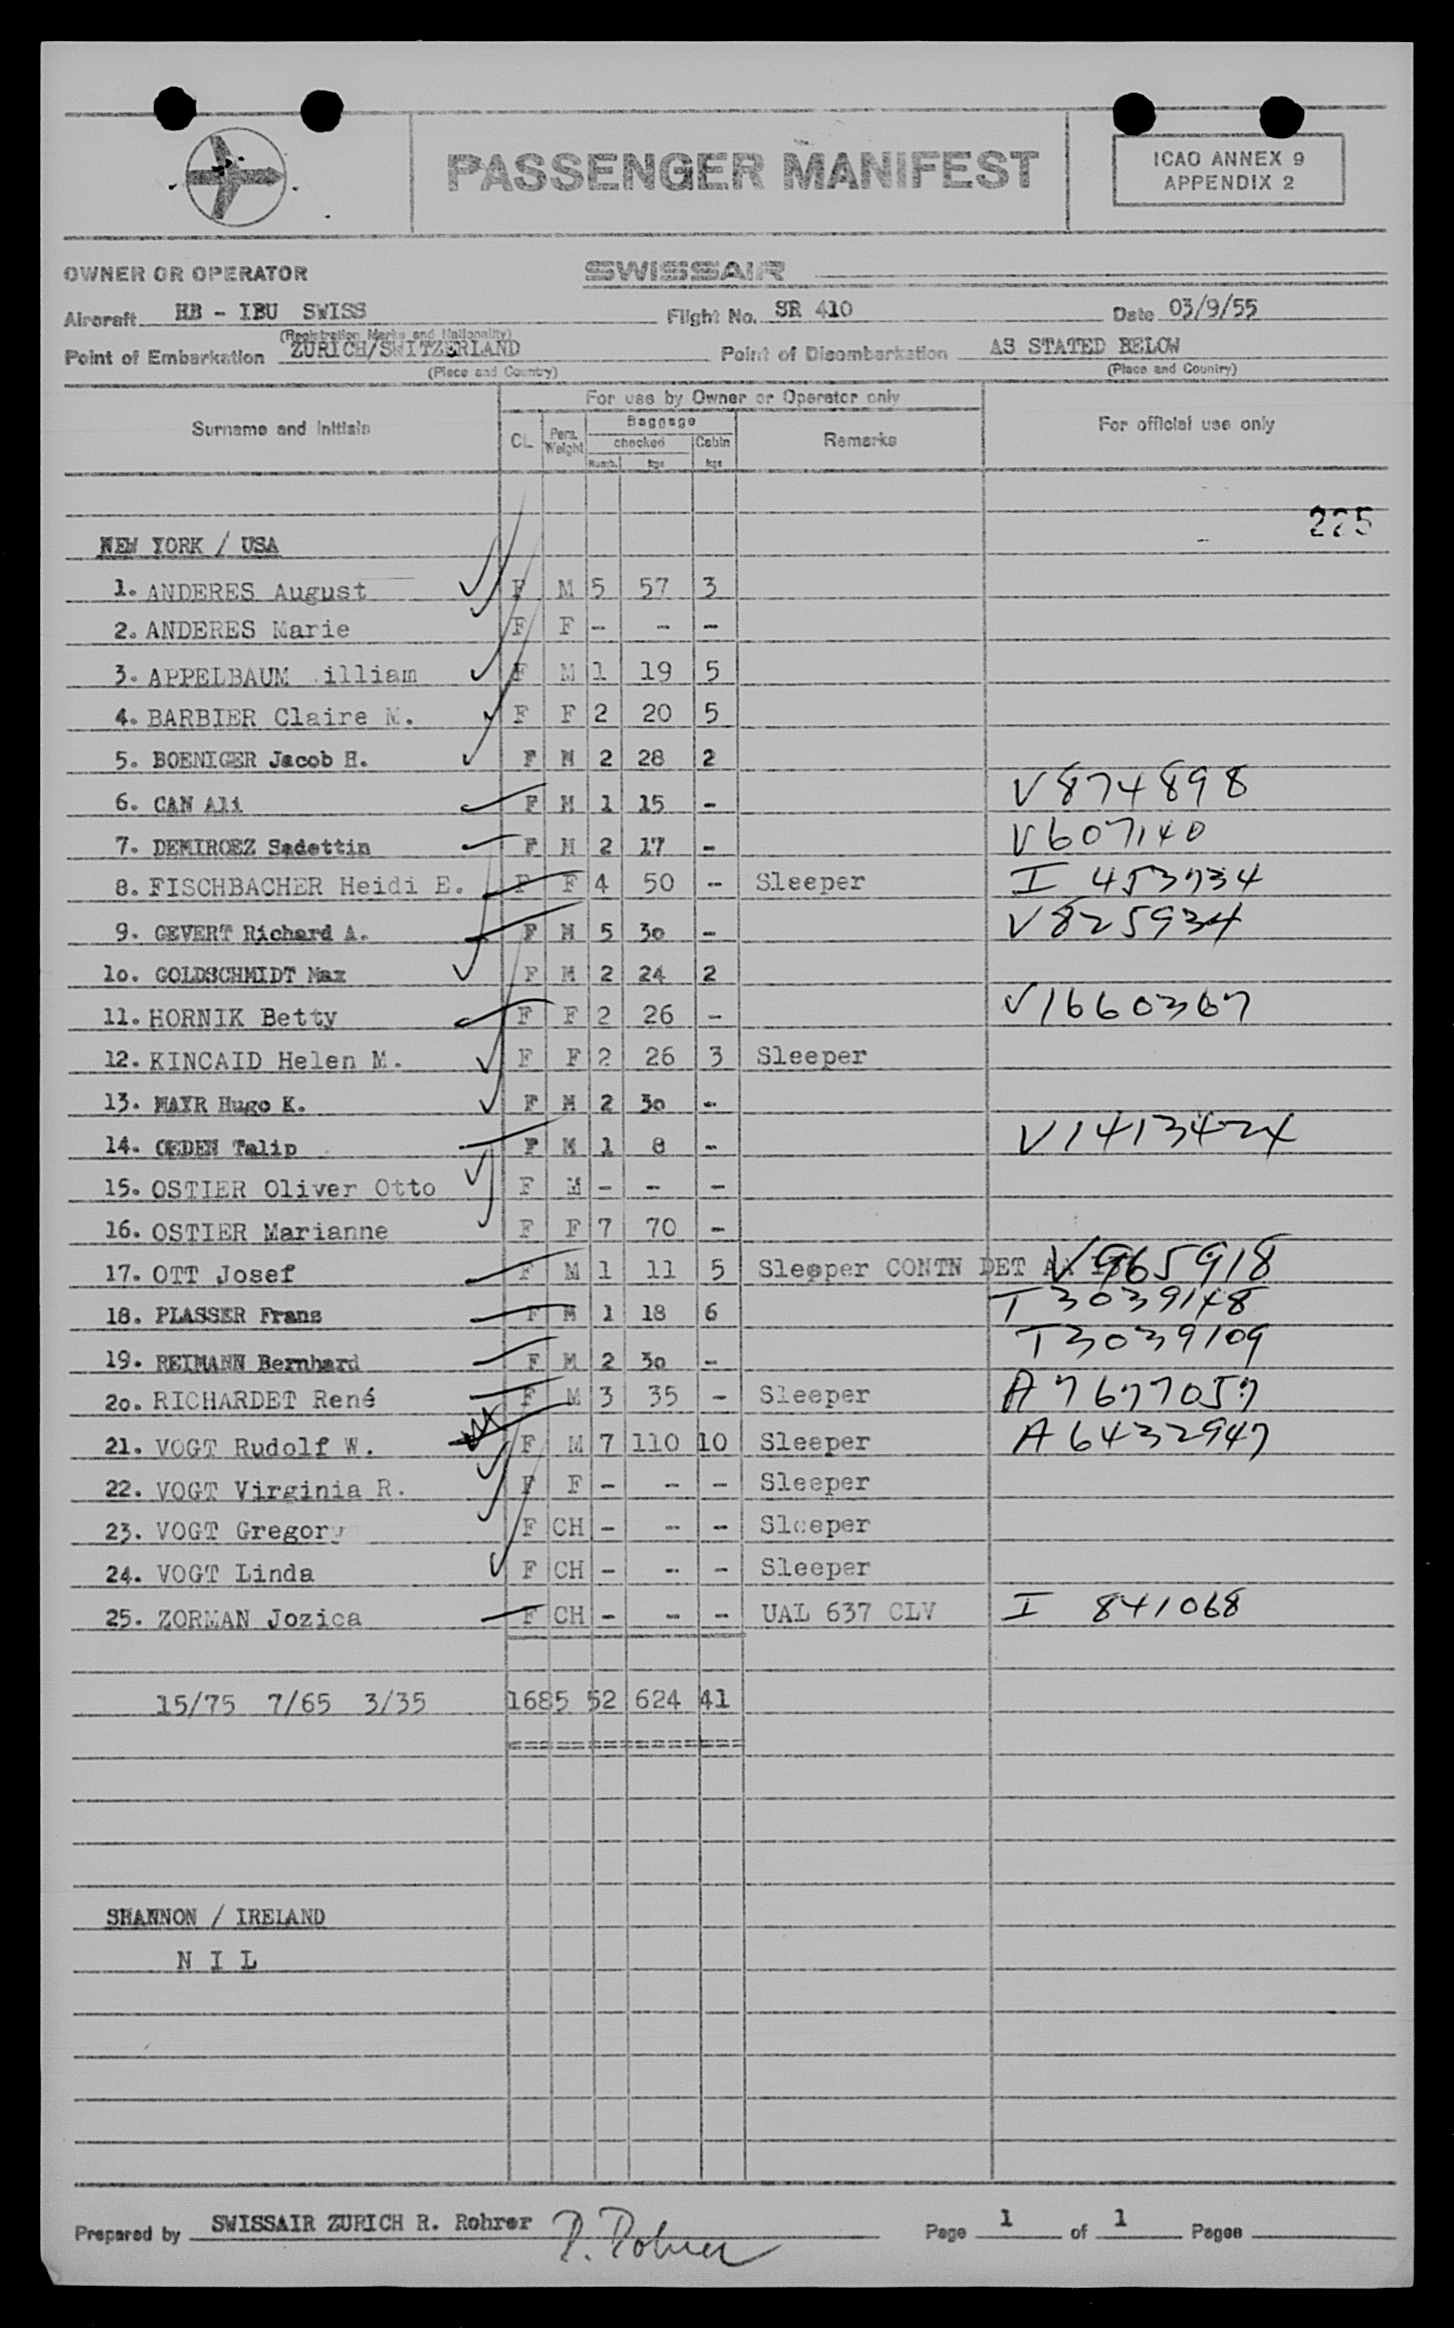 PASSENGER MANIFEST
ICAO ANNEX 9
APPENDIX 2
OWNER OR OPERATOR SWISSAIR
Aircraft HB - IBU SWISS Flight No. SR 410 Date 03/9/55
(Registration Marks and Nationality)
Point of Embarkation ZURICH/SWITZERLAND Point of Disembarkation AS STATED BELOW
(Place and Country) (Place and Country)
For use by Owner or Operator only
Surname and Initials CL Pers. Weight Baggage checked Cabin Remarks For official use only
Numb. kgs kgs
225
NEW YORK / USA
1. ANDERES August F M 5 57 3
2. ANDERES Marie F F - - -
3. APPELBAUM illiam F M 1 19 5
4. BARBIER Claire M. F F 2 20 5
5. BOENIGER Jacob H. F M 2 28 2
6. CAN Ali F M 1 15 - V874898
7. DEMIROEZ Sadettin F M 2 17 - V607140
8. FISCHBACHER Heidi E. F F 4 50 - Sleeper I 453734
9. GEVERT Richard A. F M 5 3o - V825934
1o. GOLDSCHMIDT Max F M 2 24 2
11. HORNIK Betty F F 2 26 - V1660367
12. KINCAID Helen M. F F 2 26 3 Sleeper
13. MAYR Hugo K. F M 2 3o -
14. OEDEN Talip F M 1 8 - V1413424
15. OSTIER Oliver Otto F M - - -
16. OSTIER Marianne F F 7 70 -
17. OTT Josef F M 1 11 5 Sleeper CONTN DET AA V965918
18. PLASSER Frans F M 1 18 6 T3039148
19. REIMANN Bernhard F M 2 3o - T3039109
2o. RICHARDET René F M 3 35 - Sleeper A7677057
21. VOGT Rudolf W. F M 7 110 10 Sleeper A6432947
22. VOGT Virginia R. F F - - - Sleeper
23. VOGT Gregory F CH - - - Sleeper
24. VOGT Linda F CH - - - Sleeper
25. ZORMAN Jozica F CH - - - UAL 637 CLV I 841068
15/75 7/65 3/35 1685 52 624 41
SHANNON / IRELAND
N I L
Prepared by SWISSAIR ZURICH R. Rohrer R. Rohrer Page 1 of 1 Pages